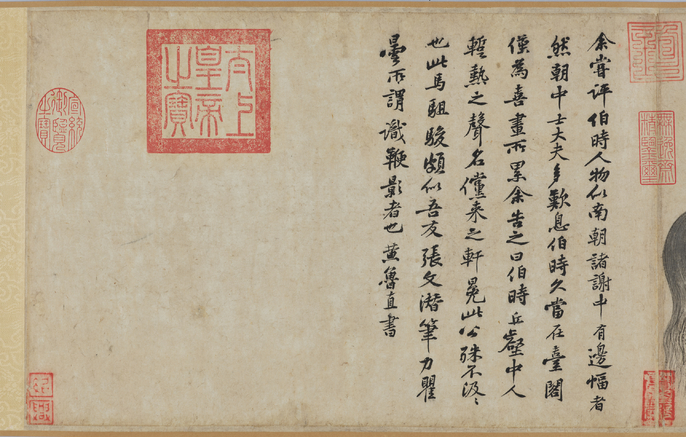 余嘗評伯時人物似南朝諸謝中有邊幅者
然朝中士大夫多歎息伯時久當在臺閣
僅為喜畫所累余告之曰伯時丘壑中人
蹔熱之聲名儻来之軒冕此公殊不汲〻
也此馬駔駿頗似吾友張文潛筆力瞿
曇所謂識鞭影者也黃魯直書
太上皇帝之寶
宣統御覽之寶